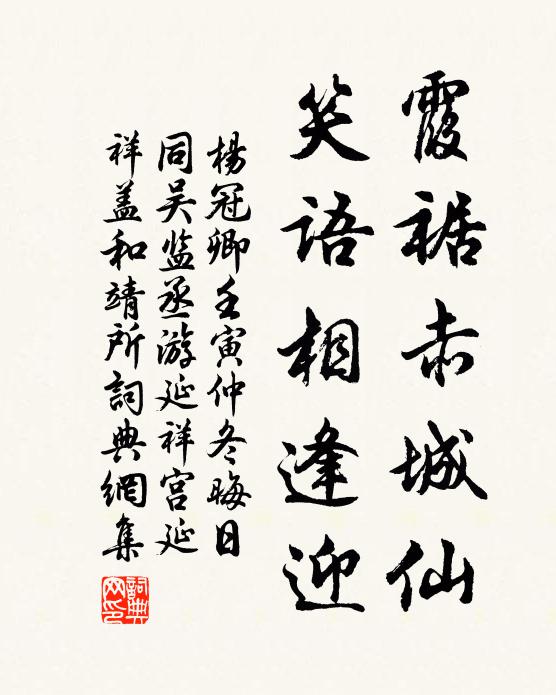 霞裾赤城仙
笑语相逢迎
杨冠卿壬寅仲冬晦日
同吴监丞游延祥宫延
祥盖和靖所詞典網集
詞典網印